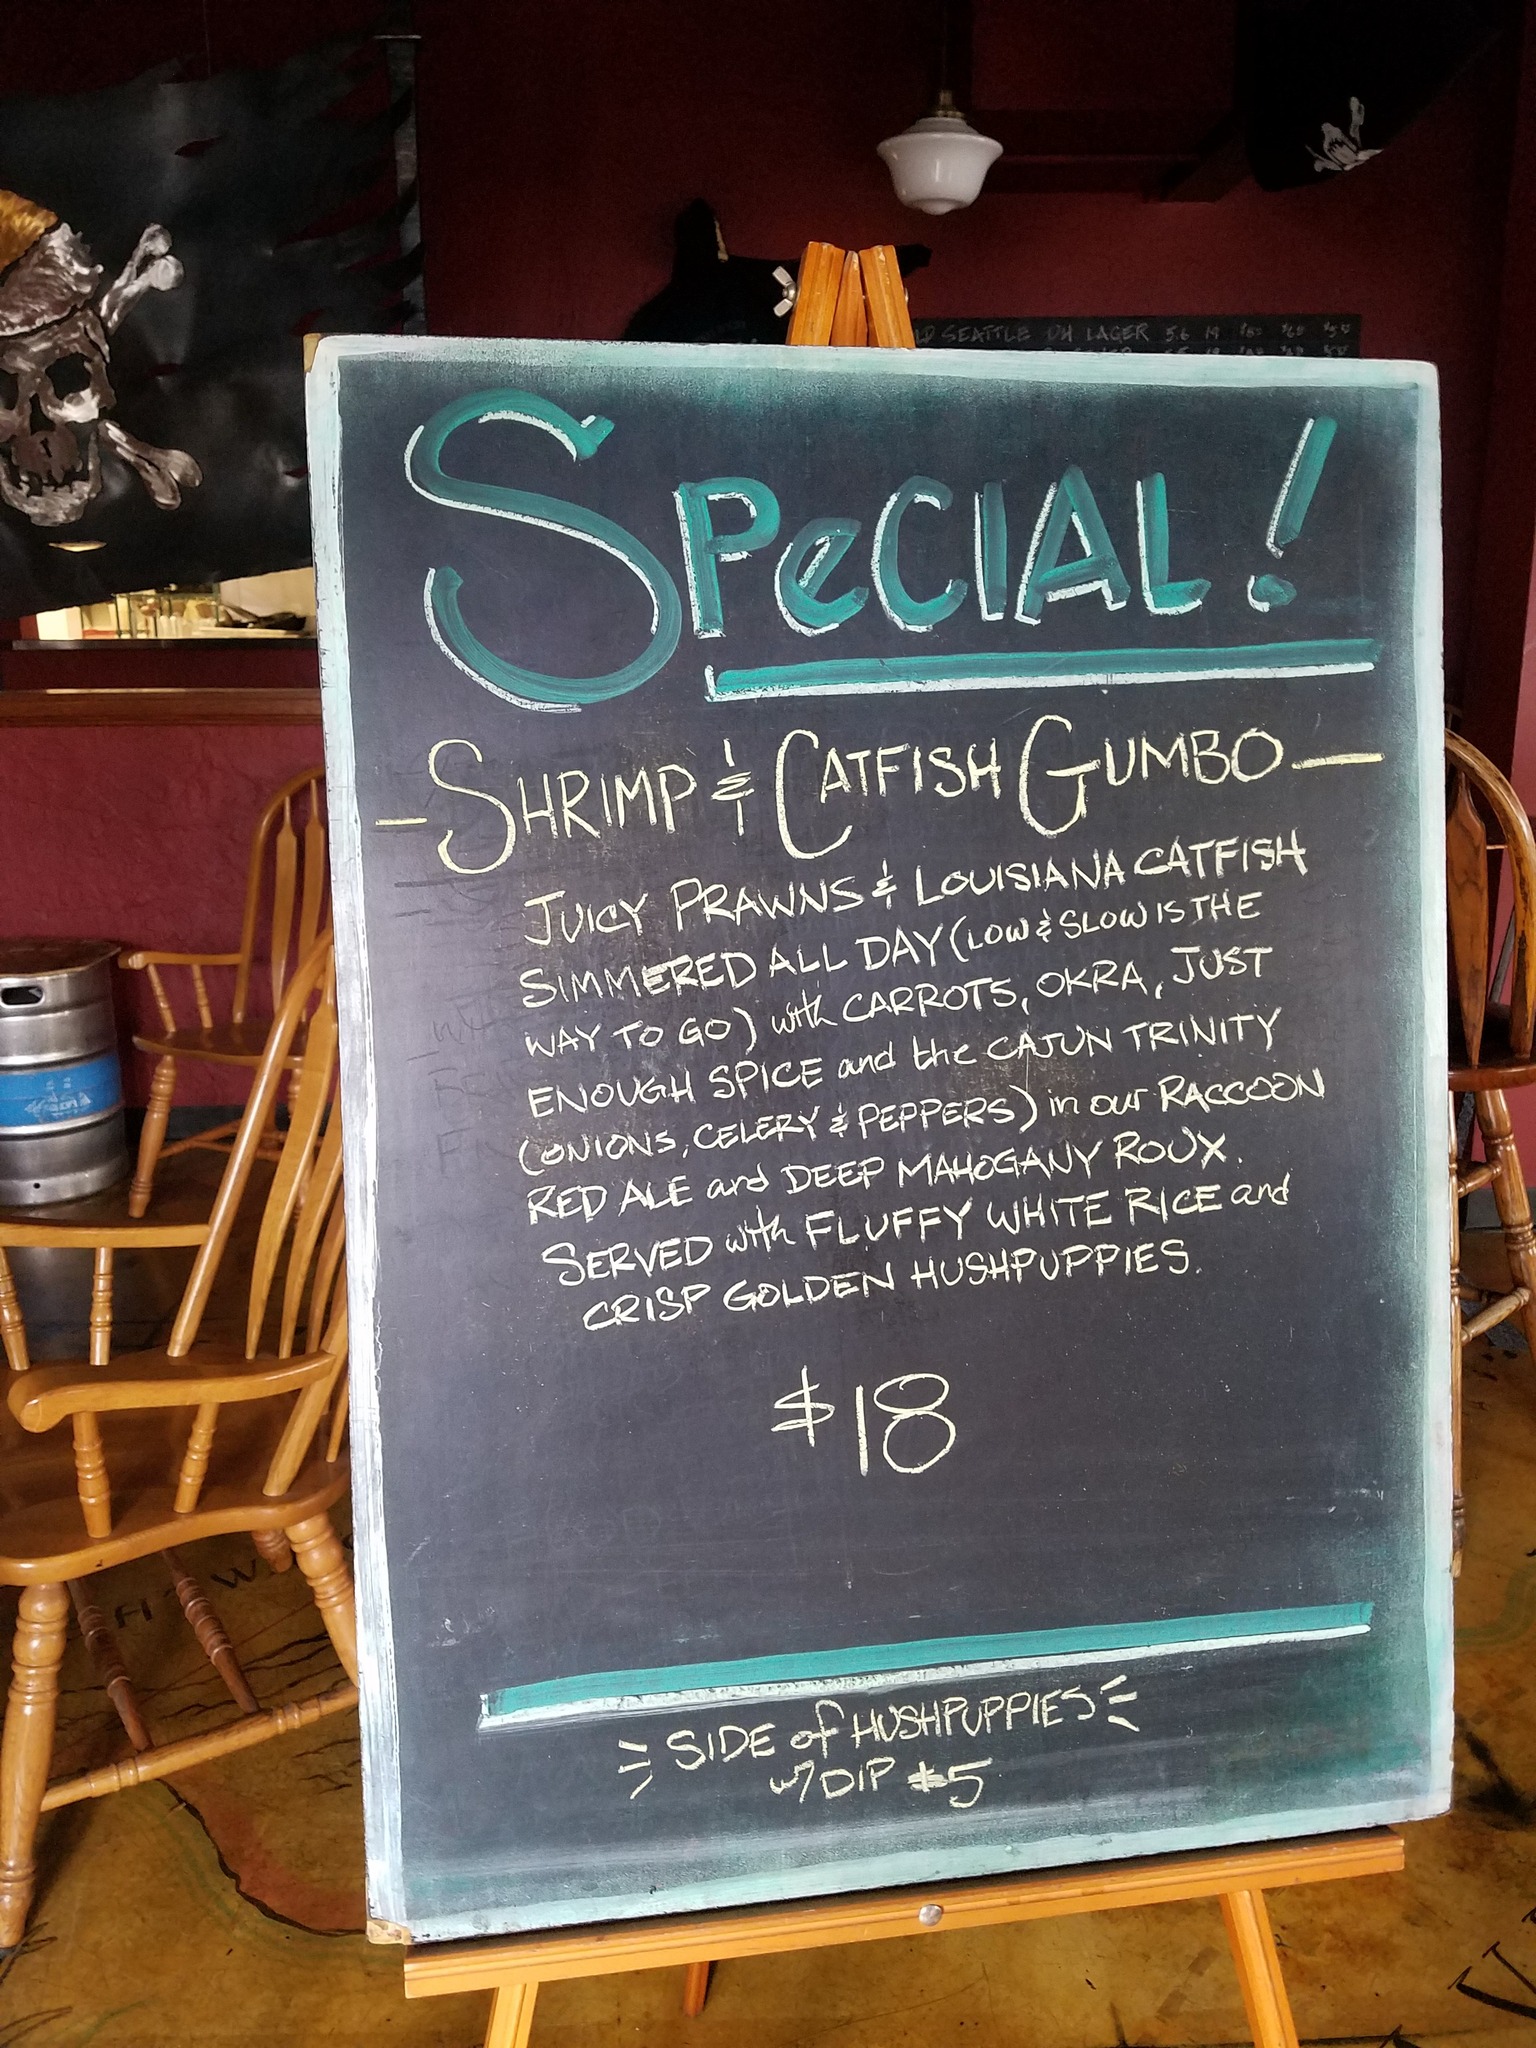 LD SEATTLE DH LAGER 5.6 19
SPeCIAL!
-SHRIMP & CATFISH GUMBO-
JUICY PRAWNS & LOUISIANA CATFISH
SIMMERED ALL DAY (LOW & SLOW IS THE
WAY TO GO) with CARROTS, OKRA, JUST
ENOUGH SPICE and the CAJUN TRINITY
(ONIONS, CELERY & PEPPERS) in our RACCOON
RED ALE and DEEP MAHOGANY ROUX.
SERVED with FLUFFY WHITE RICE and
CRISP GOLDEN HUSHPUPPIES.
$18
SIDE of HUSHPUPPIES
w/ DIP $5